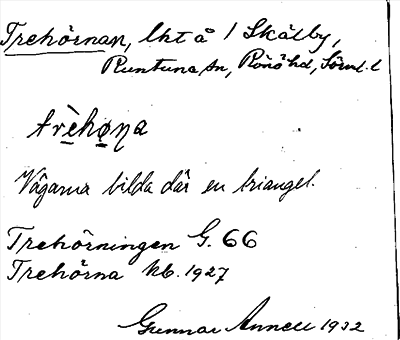 Trehörnan, lht å / Skälby,
Runtuna sn, Rönö hd, Sörml. l
trèhø̣ṇa
Vägarna bilda där en triangel.
Trehörningen G. 66
Trehörna hb. 1927
Gunnar Annell 1932